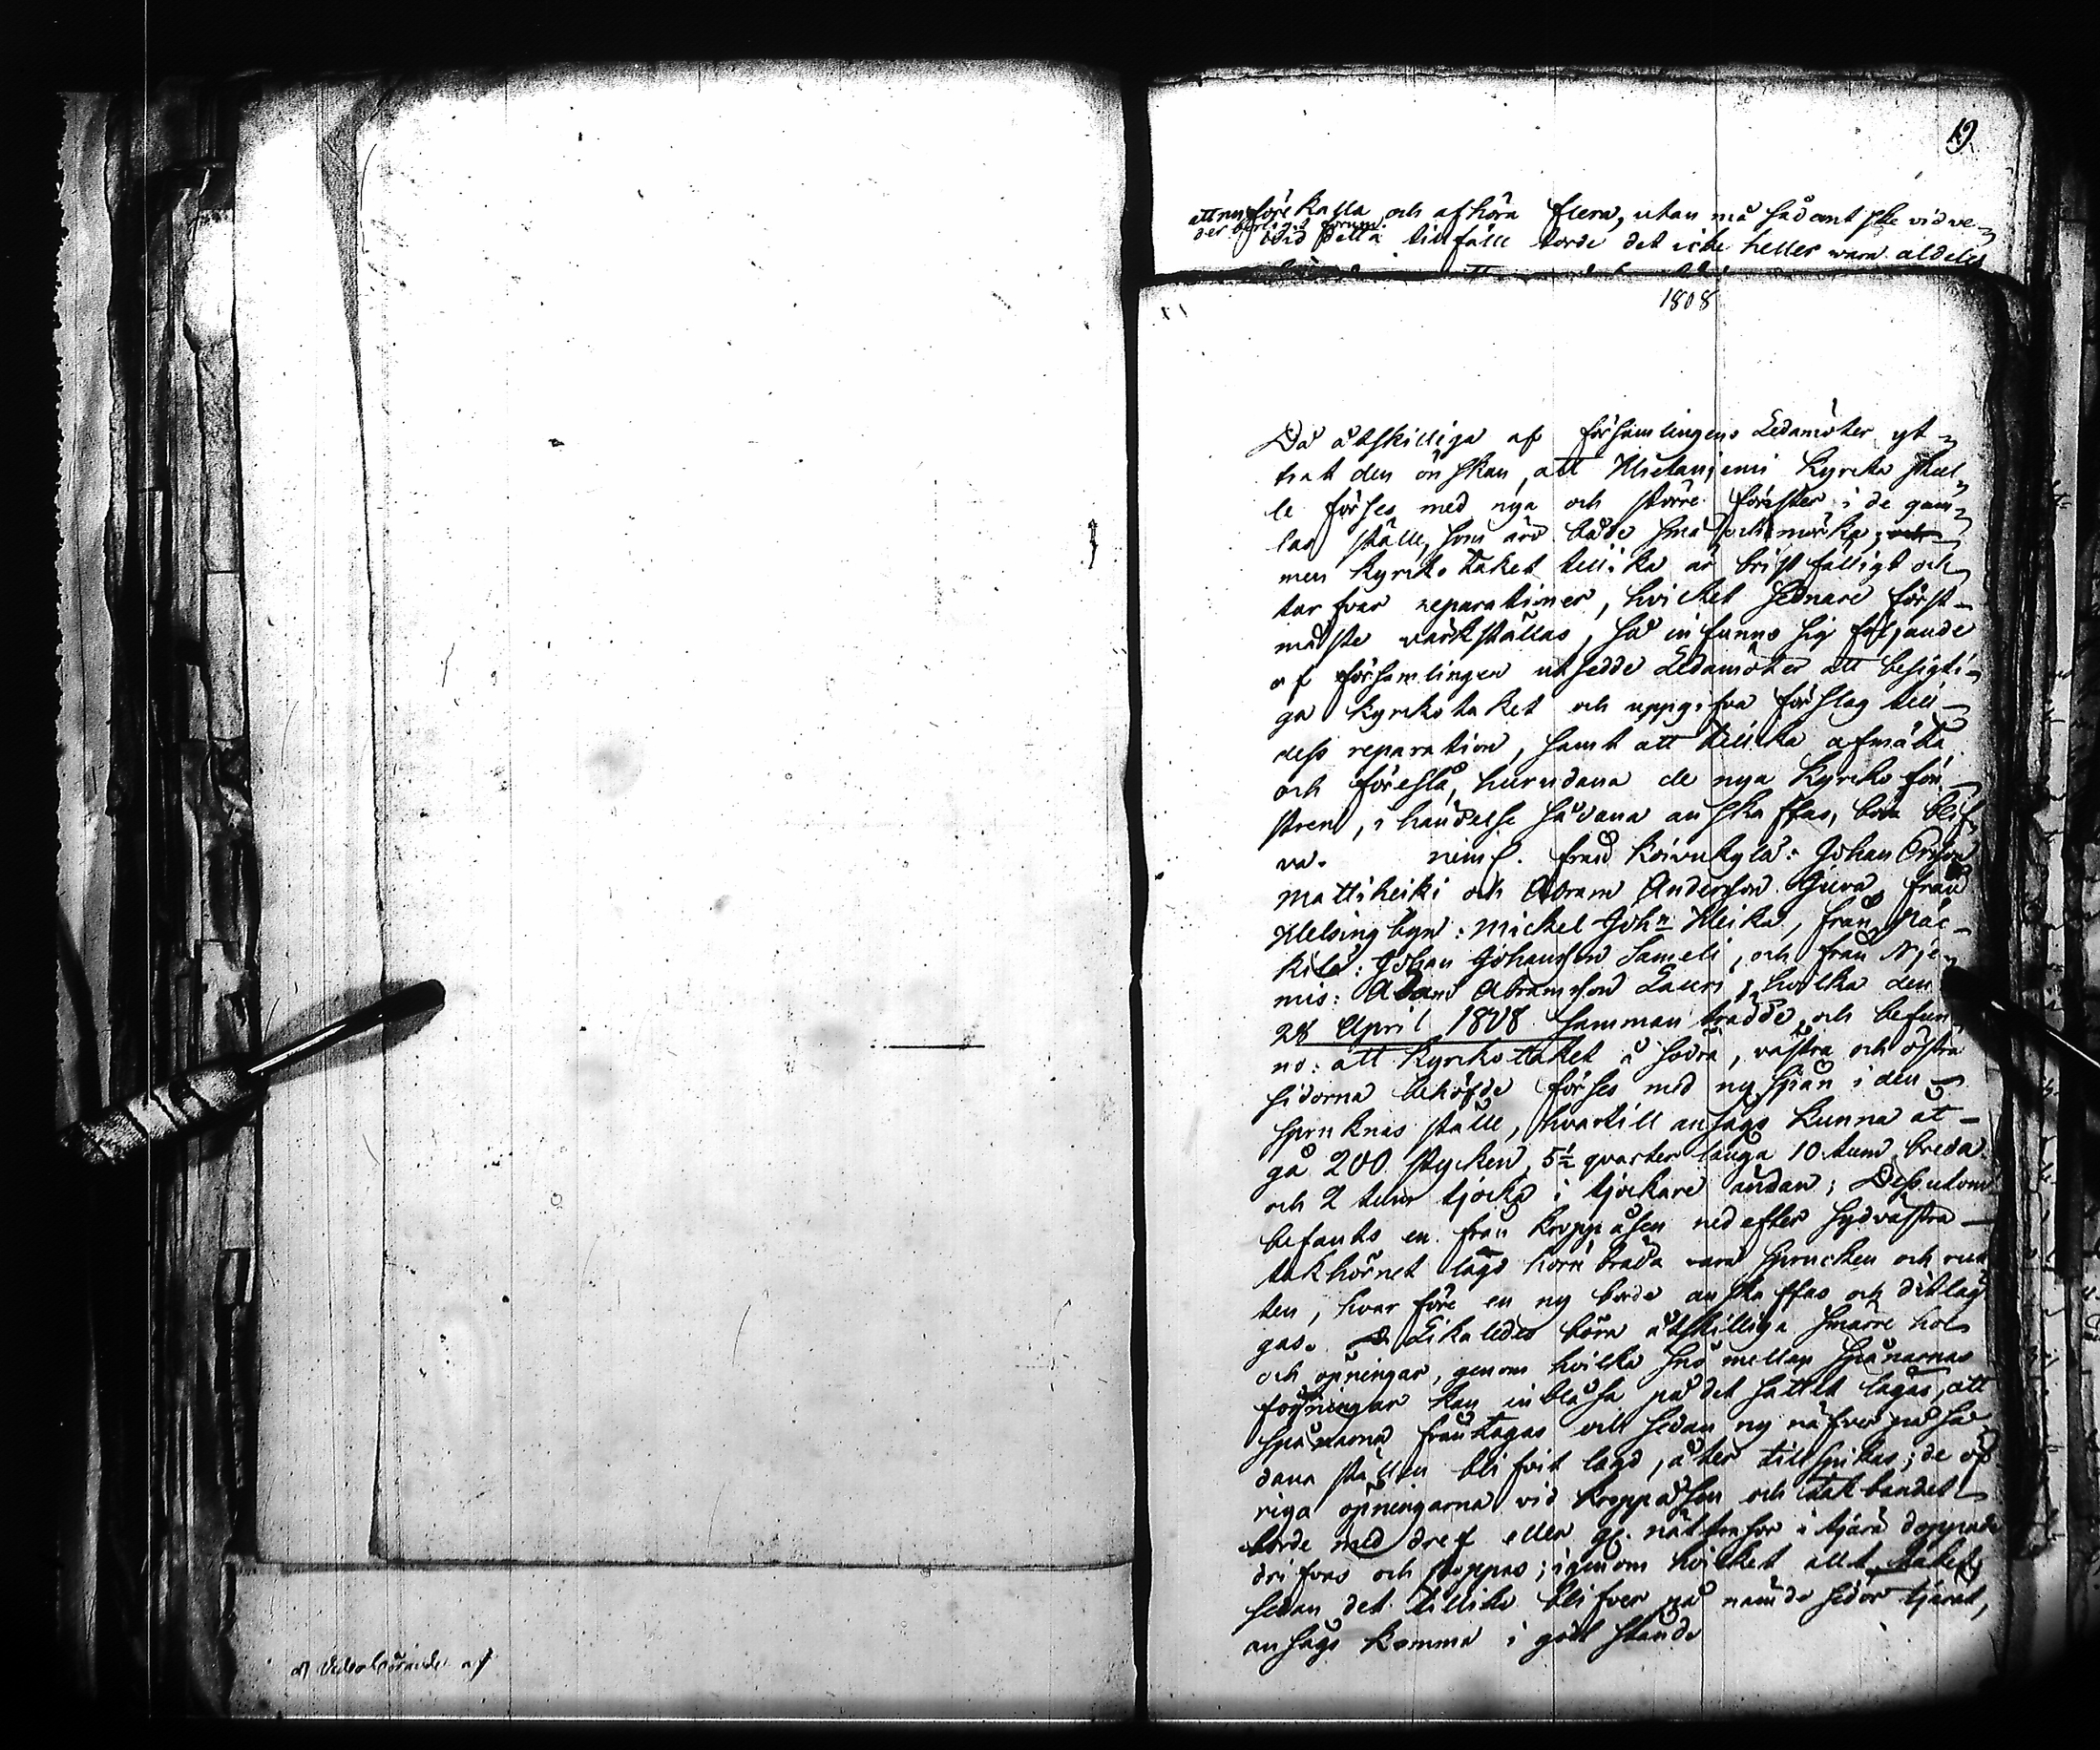 19
att nu förekalla och afhöra flera, utan må sådant ske vid ve-
derbörligt forum.
Vid detta tillfälle torde det icke heller vara aldeles
1808
Då åtskilliga af Församlingens Ledamöter yt-
trat den önskan, att Kyrcka skul-
le förses med nya och större fönster i de gam-
las ställe, som äro både små och mörka;
men kyrkotaket tillika är bristfälligt och
tarfvar reparationer, hvilket sednare först
måste värkställas, så infunno sig följande
af församlingen utsedde Ledamöter att besigti-
ga kyrkotaket och uppgifva förslag till
dess reparation, samt att tillika afmäta
och föreslå, hurudana de nya kyrko fön-
stren, i händelse sådana anskaffas, böra blif-
va. niml. från Koivukylä: Johan
Mattiheiki och Abram Andersson Juva, från
Helsingbyn: Mickel Joh:n Heika, från Näc-
kilä: Johan Johansson Sameli, och från Nje-
mis: Adam Abramsson Lauri, hvilka den
28 April 1808 sammanträdde och befun-
no: att kyrkotaket å södra, västra och östra
sidorna behöfde förses med ny spån i den
spruknas ställe, hvartill ansågs kunna åt-
gå 200 stycken, 5½ quarter långa 10 tum breda
och 2 tum tjocka i tjockare ändan; Dessutom
befants en från kroppåsen nedefter sydvästra
takhörnet lagd hörnbräda vara sprucken och rut-
ten, hvarföre en ny borde anskaffas och ditläg-
gas. Likaledes böra åtskilliga smärre hol
och öpningar, genom hvilka snö mellan spånarnas
fogningar kan inblåsa på det sättet lagas, att
spånarna fråntagas och sedan ny näfver på så-
dana ställen blifvit lagd, åter tillspikas; de öf-
riga öpningarna vid kroppåsen och takbandet
borde med dref eller gl. nättrasor i tjära doppade
drifvas och stoppas; igenom hvilket allt taket,
sedan det tillika blifver på nämde sidor tjärat,
ansågs komma i godt stånd